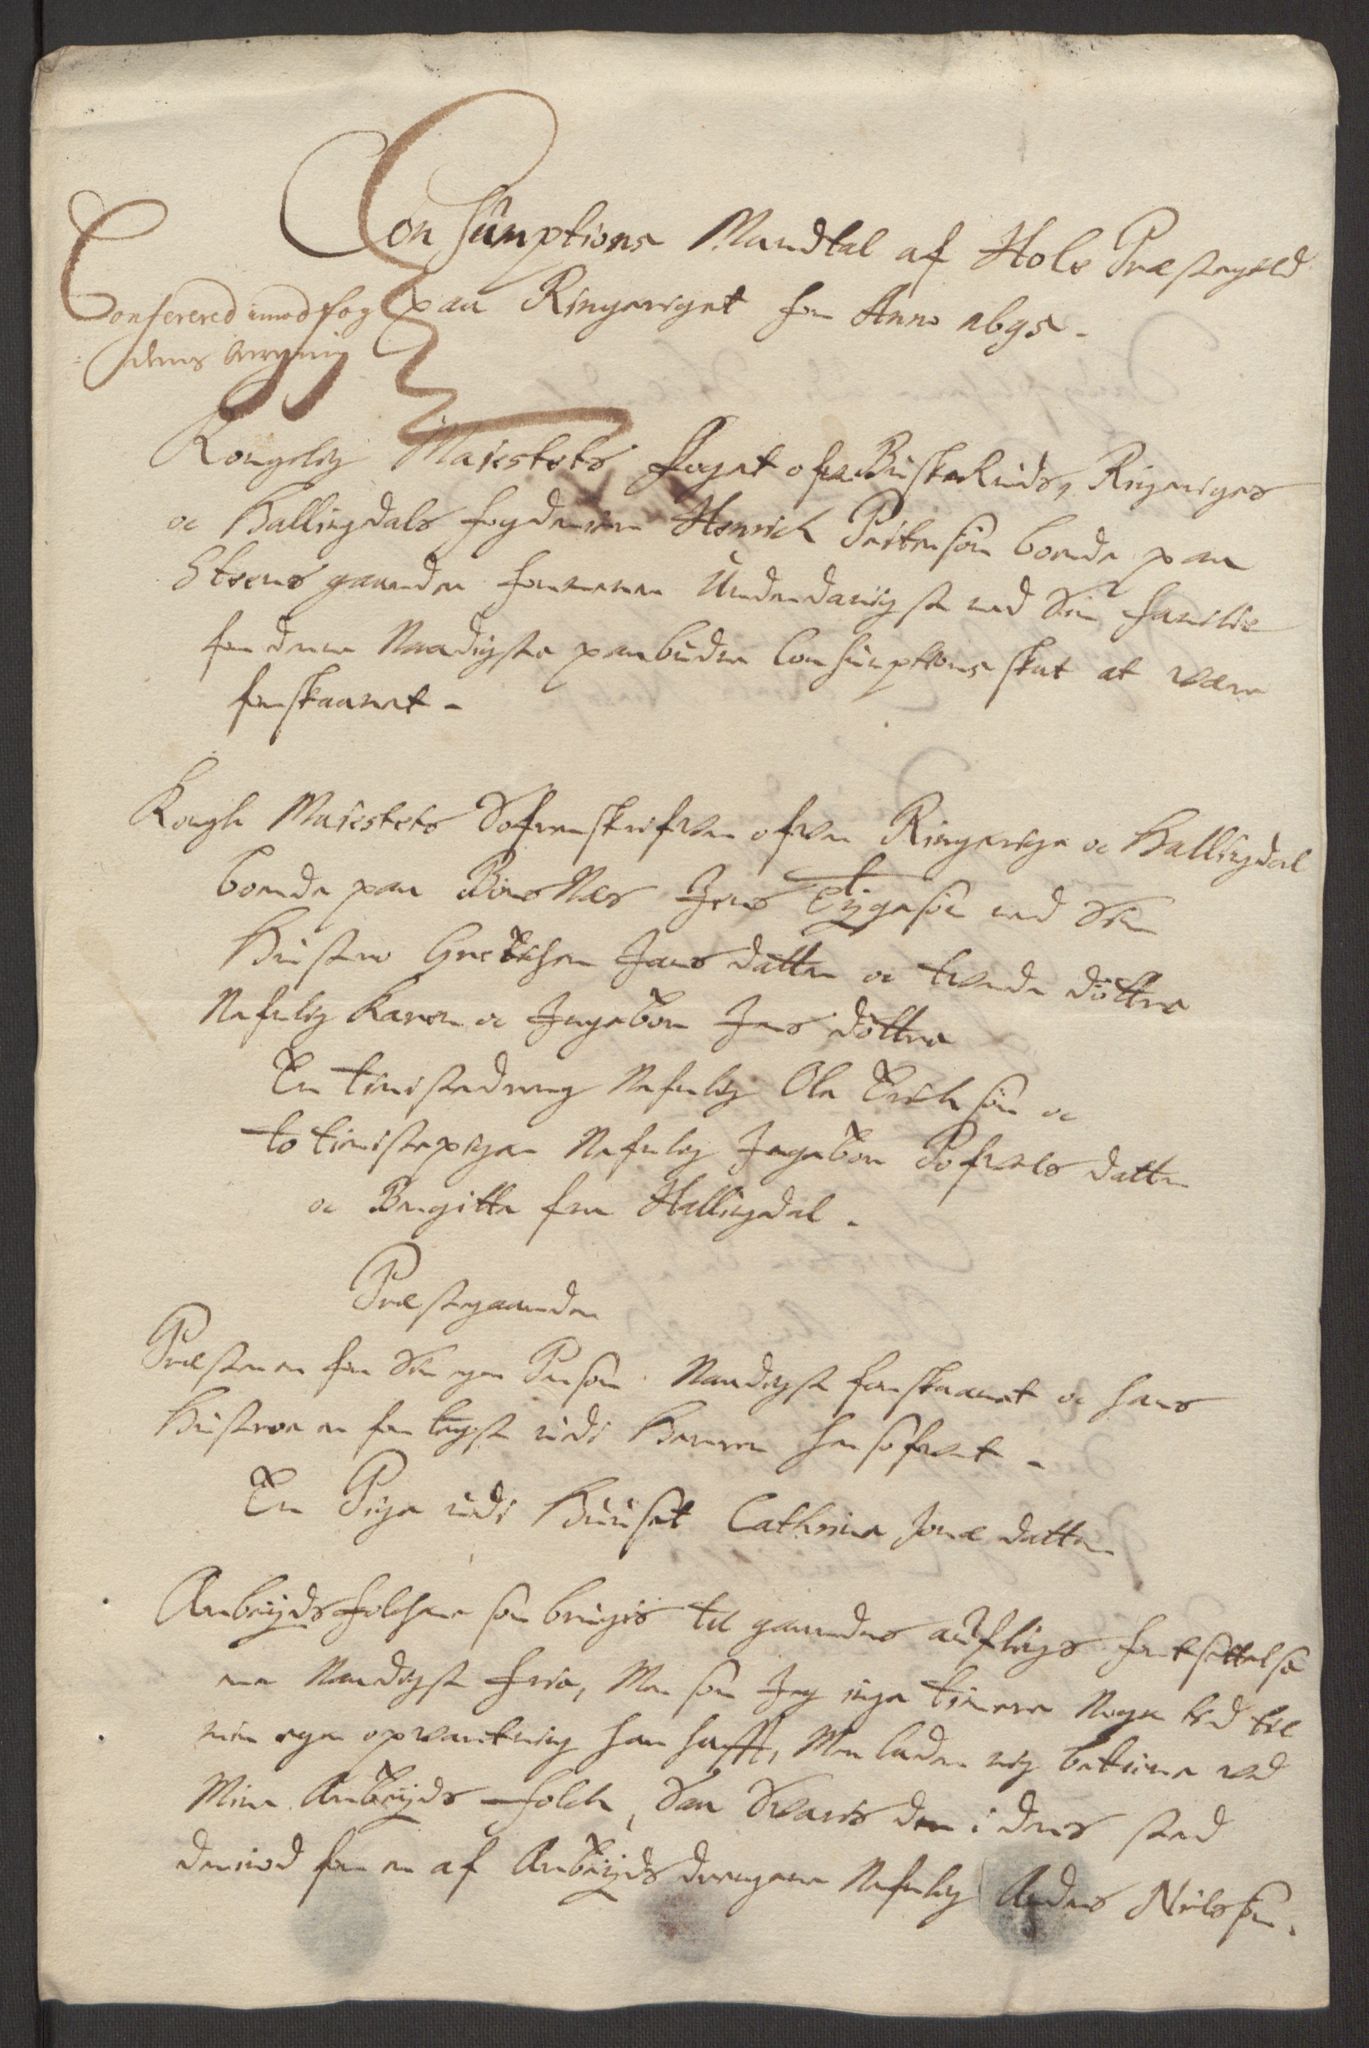 Consumptions Mandtal af Hole Præstegield
paa Ringeriget for Anno 1695.
Conferered imod fog
dens
Kongelig Majestets Foget ofver Buskeruds, Ringeriges
oc Hallingdals fogderier Henrich Peitersøn boende paa
Steens gaarden formener Underdanigst med Sin familie
for denne Naadigste paabudne Consumptions skat at være
forskaanet.
Kongl: Majestets Sorenskrifver ofver Ringerige oc Hallingdal
boende paa Bønsnes Jens Tygesøn med Sin
Hustro Gretchen Jens datter oc tvende døttre
Nefnlig Karen oc Ingebor Jens døttre
En tienistedreng Nefnlig Ole Erichsøn oc
to tienistepiger Nefnlig Ingebor Pofvels datter
oc Bergitte fra Hallingdal.
Præstegaarden
Præsten er for Sin egen Person Naadigst forskaanet oc hans
Hustroe er for lengst udi Herren hensofvet.
En Pige udi Huuset Cathrina Jonæ datter
Arbeyds folchene som brugis til gaardens aufligs fortsettelse
ere Naadigst frie, Men som Jeg inge tienere Nogen tid til
min egen opvartning har hafft, Men lader mig betiene ved
Mine Arbeyds folch, Saa Svaris der i dens sted
derimod for en af Arbeyds drengene Nefnlig Anders Nielssøn.